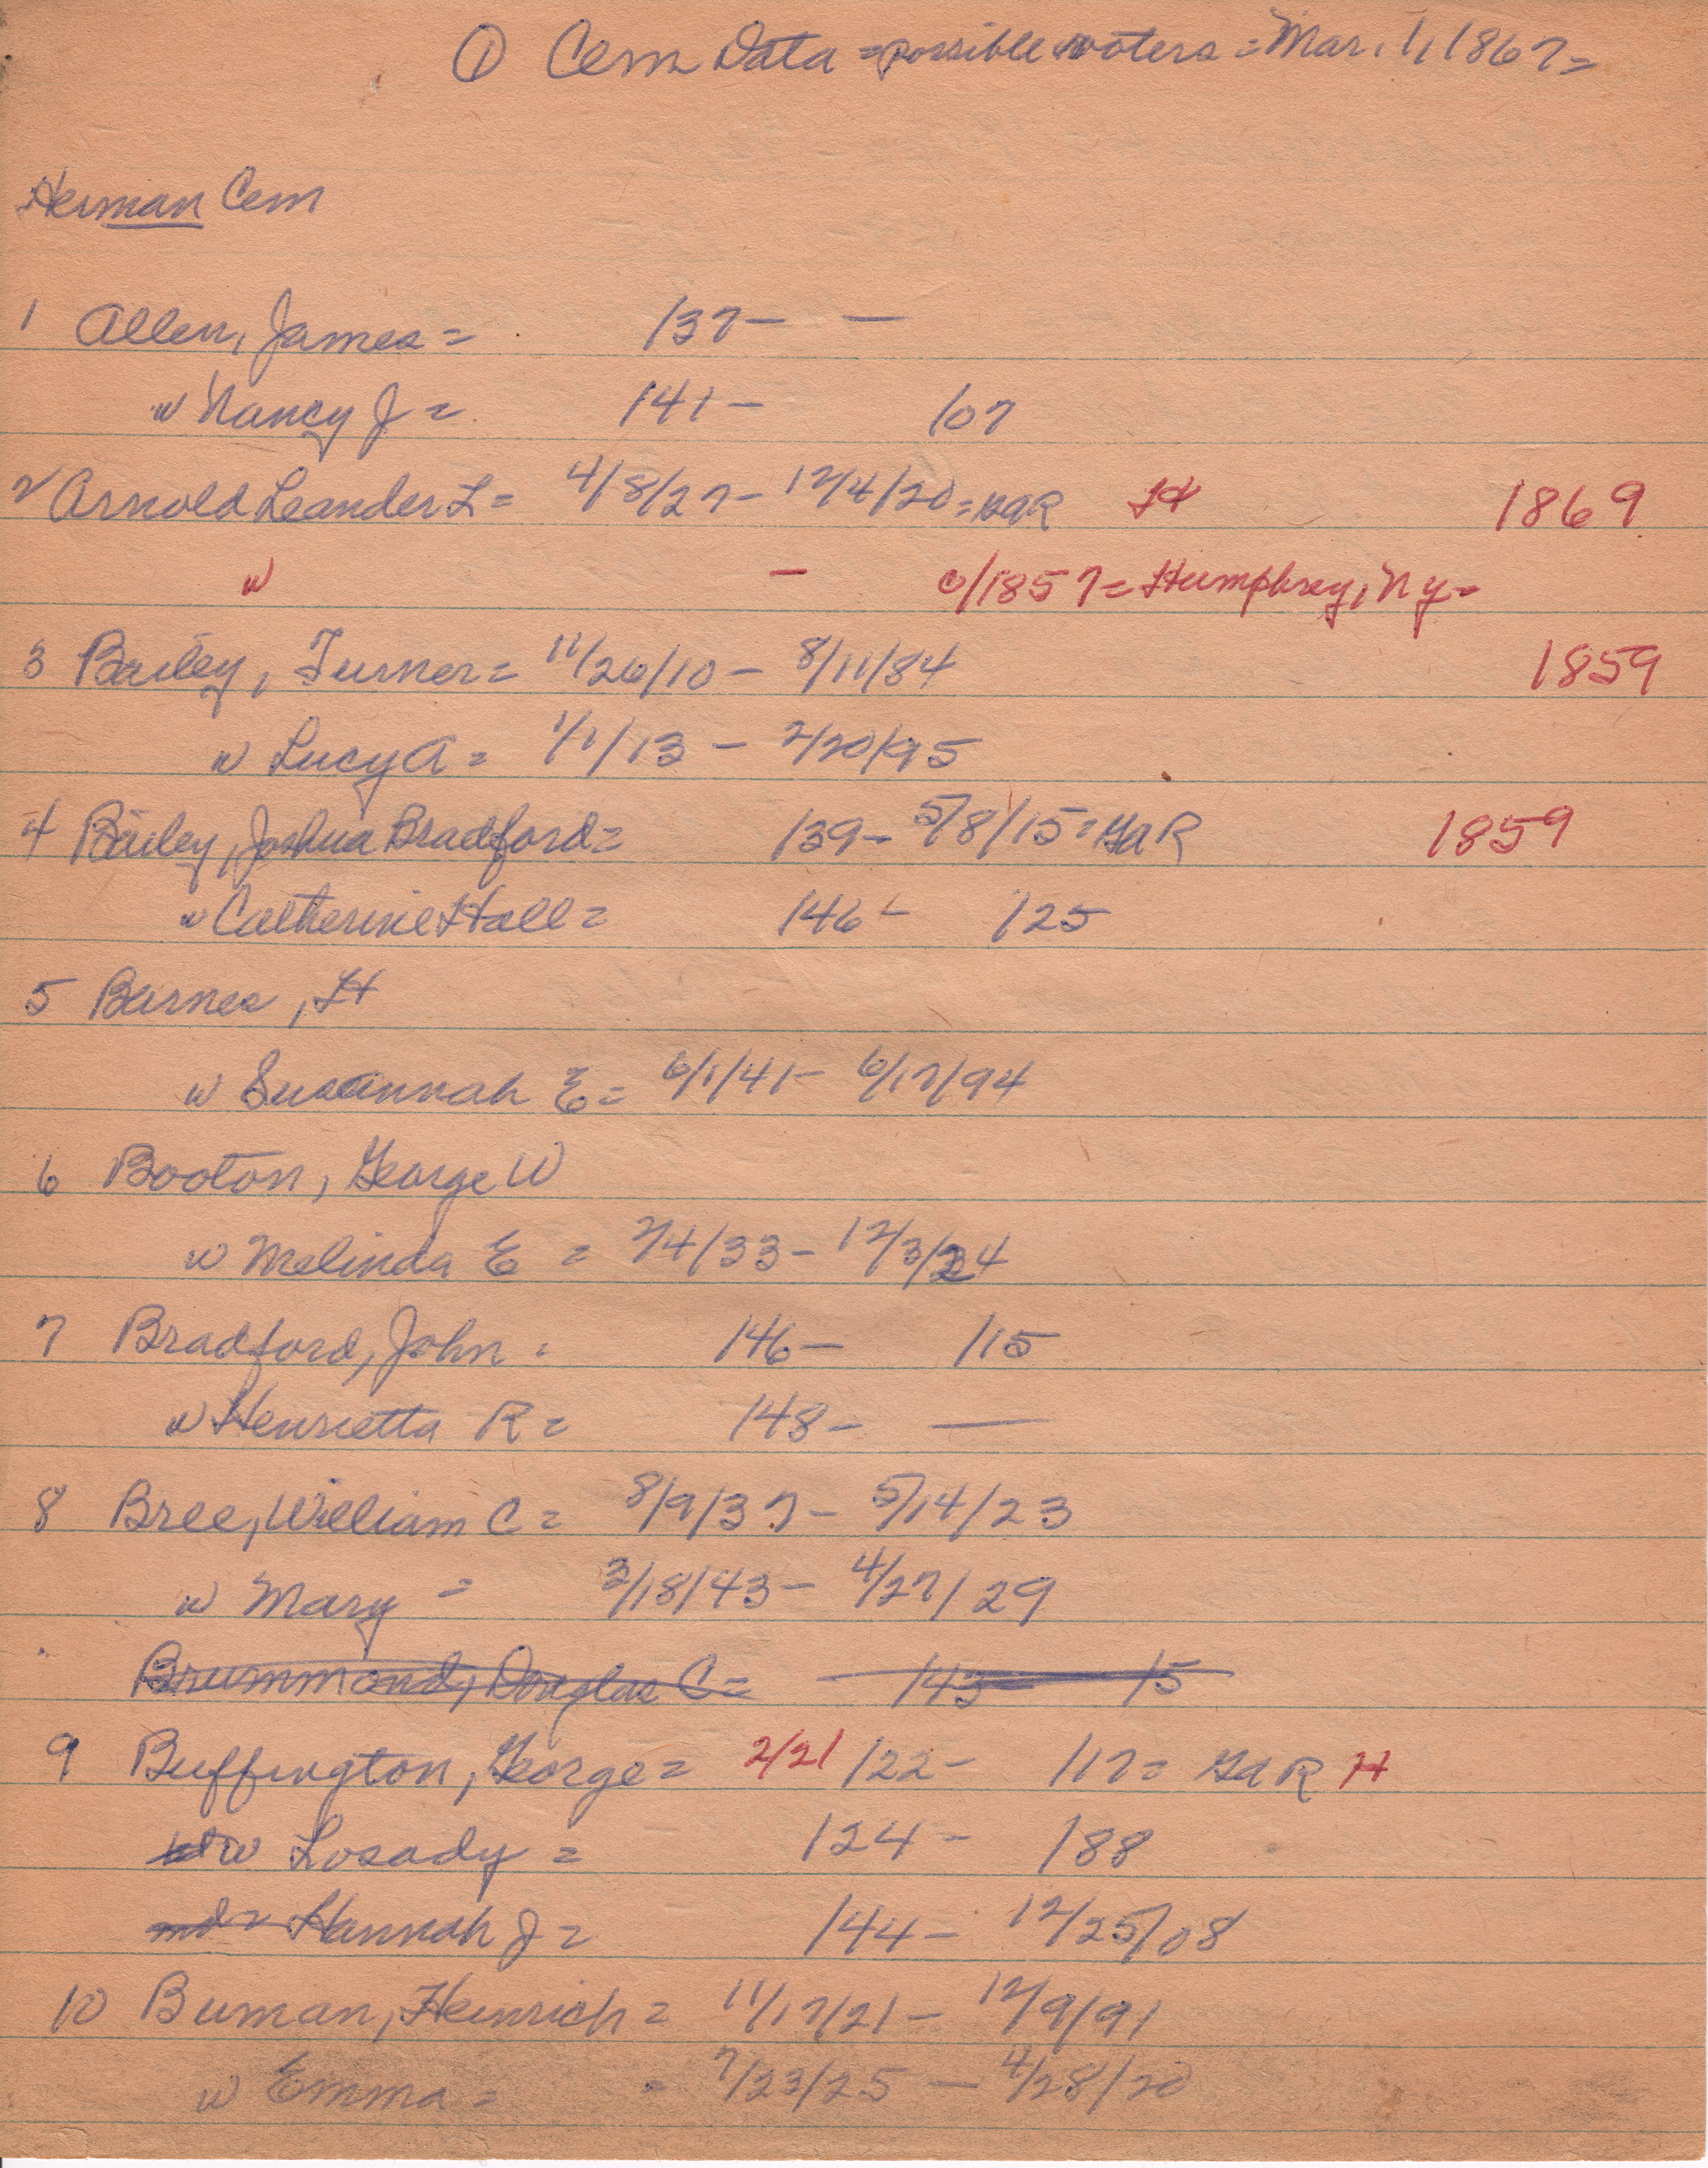 ① Cem Data = possible voters = Mar. 1, 1867 =
Herman Cem
1 Allen, James = /37 – —
w Nancy J = /41 – /07
2 Arnold Leander L = 4/8/27 – 12/4/20 = GAR H 1869
w – c/1857 = Humphrey, Ny =
3 Bailey, Turner = 11/26/10 – 8/11/84 1859
w Lucy A = 1/1/13 – 2/20/95
4 Bailey, Joshua Bradford = /39 – 5/8/15 = GAR 1859
w Catherine Hall = /46 – /25
5 Barnes, H
w Susannah E = 6/1/41 – 6/17/94
6 Booton, George W
w Melinda E = 2/4/33 – 12/3/24
7 Bradford, John = /46 – /15
w Henrietta R = /48 – —
8 Bree, William C = 8/9/37 – 5/14/23
w Mary = 3/18/43 – 4/27/29
Brummond, Douglas C = /43 – /15
9 Buffington, George = 2/21/22 – /17 = GAR H
w Losady = /24 – /88
Hannah J = /44 – 12/25/08
10 Buman, Heinrich = 11/17/21 – 12/9/91
w Emma = 7/23/25 – 4/28/20